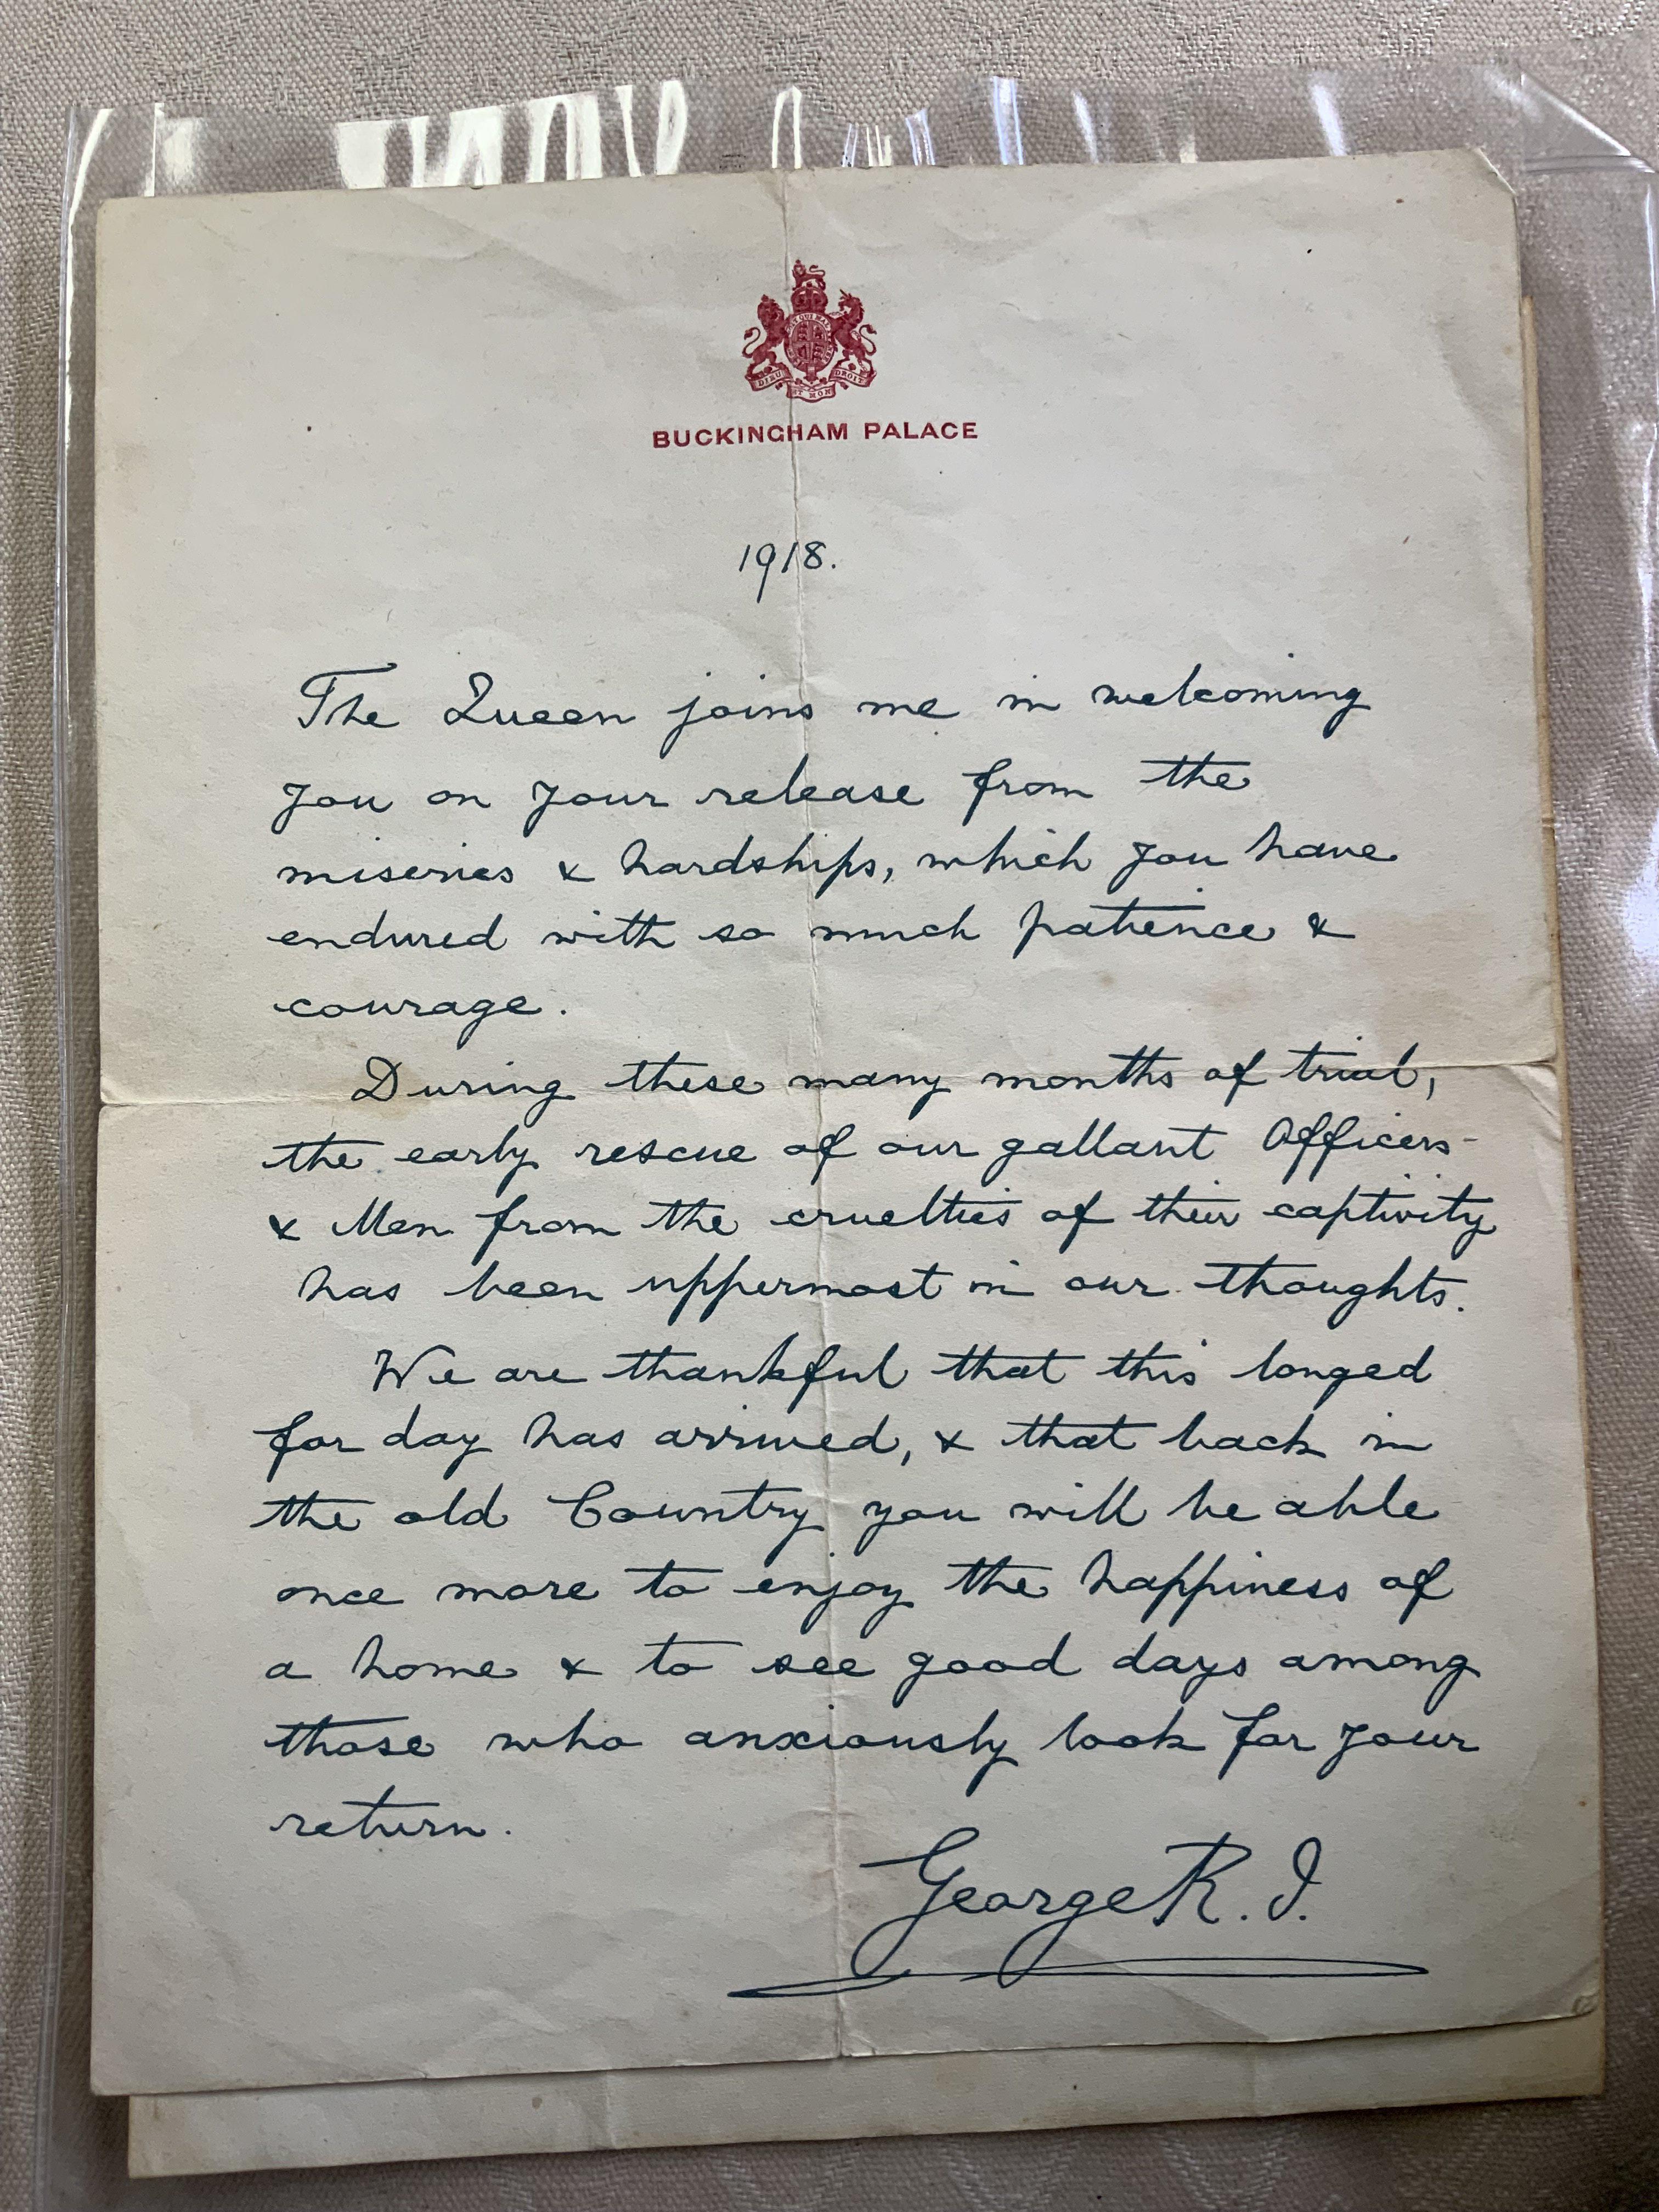 DIEU ET MON DROIT
BUCKINGHAM PALACE
1918.
The Queen joins me in welcoming
you on your release from the
miseries & hardships, which you have
endured with so much patience &
courage.
During these many months of trial,
the early rescue of our gallant Officers
& Men from the cruelties of their captivity
has been uppermost in our thoughts.
We are thankful that this longed
for day has arrived, & that back in
the old Country you will be able
once more to enjoy the happiness of
a home & to see good days among
those who anxiously look for your
return.
George R. I.